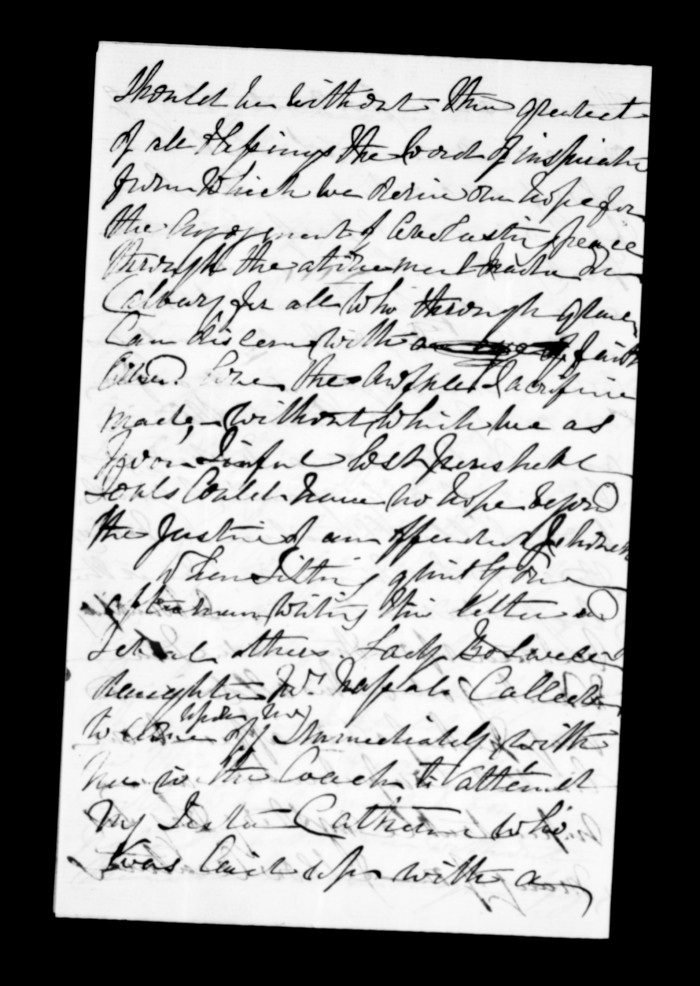 should be without this greatest
of all Blessings the word of inspiration
from which we derive our hope for
the enjoyment of everlasting peace
through the atonement made on
Calvary for all who through grace
Can discern with an eye of faith
the sacrifice
made, – without which we as
poor sinful lost perishable
Souls could have no hope beyond
the Justice of an offended Jehovah
When sitting quietly one
afternoon writing this letter and
several others Lady
daughter Mr. called
to upon me immediately with
her in the Coach to attend
my Sister Catherine who
was laid up with a